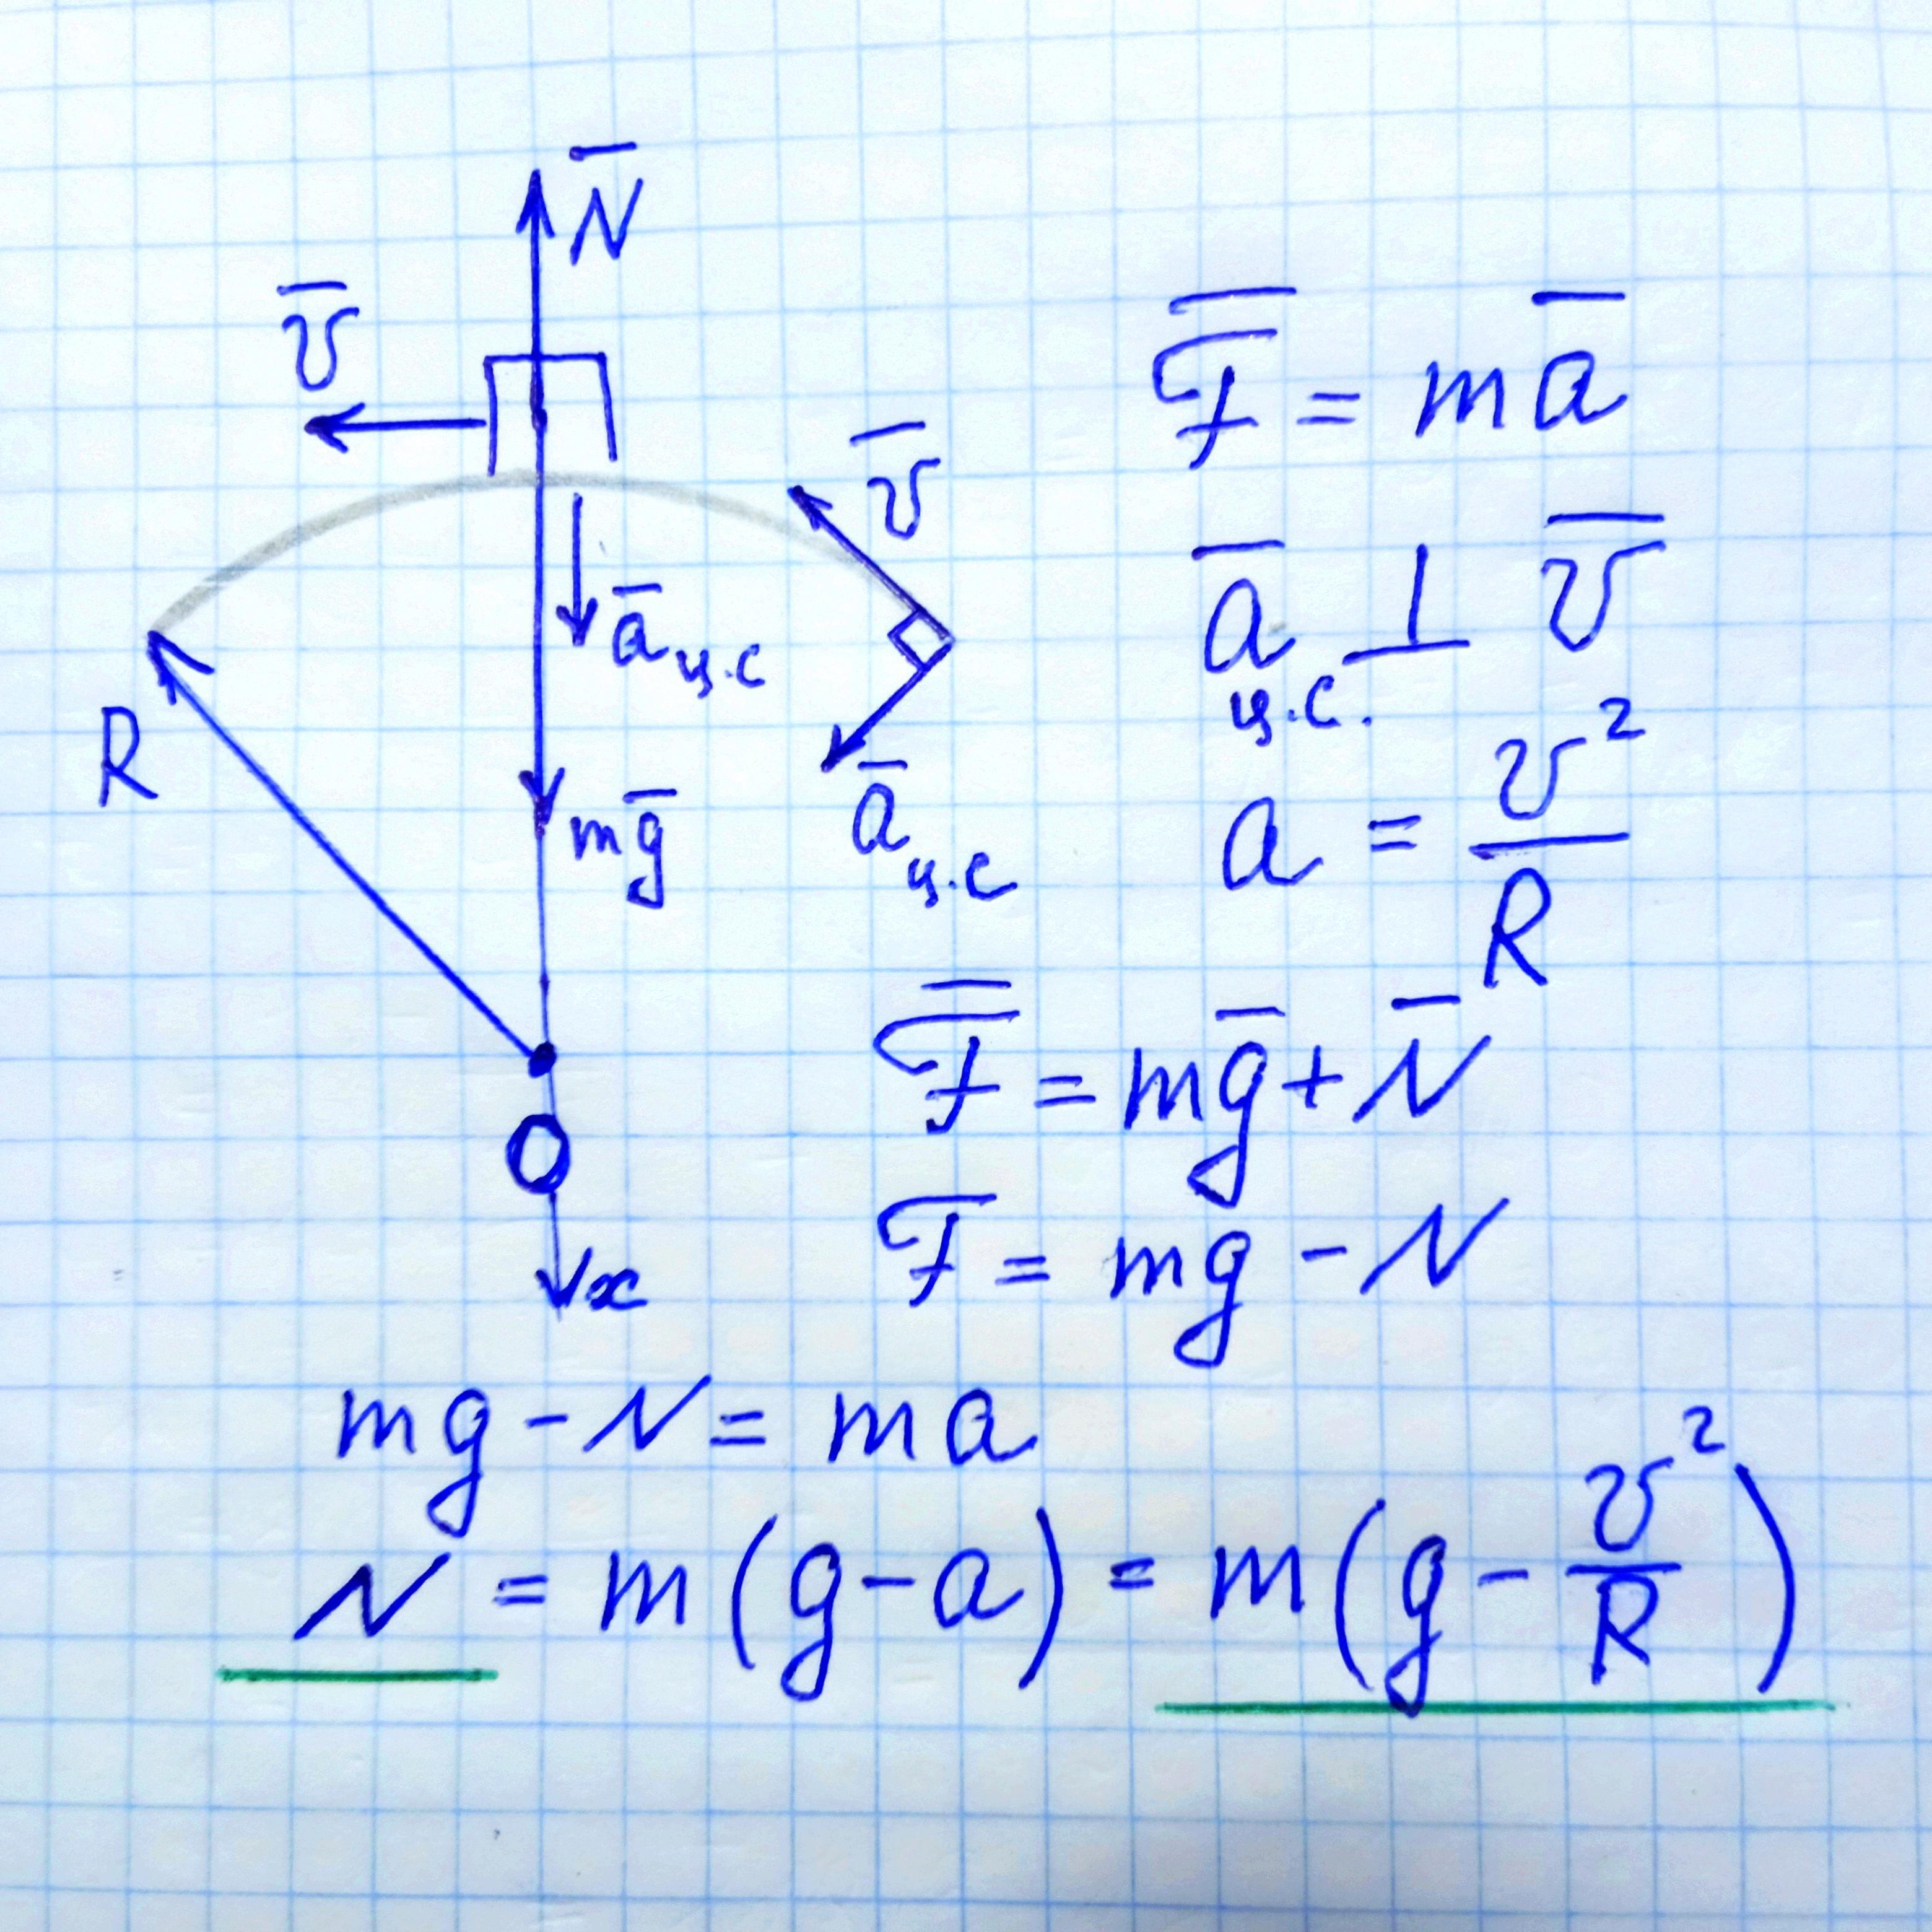 N̅
v̅
v̅
a̅ ц.с
R
mg̅
a̅ ц.с
O
x
F̅ = ma̅
a̅ ц.с. ⊥ v̅
a = v²/R
F̅ = mg̅ + N̅
F = mg - N
mg - N = ma
N = m(g-a) = m(g - v²/R)